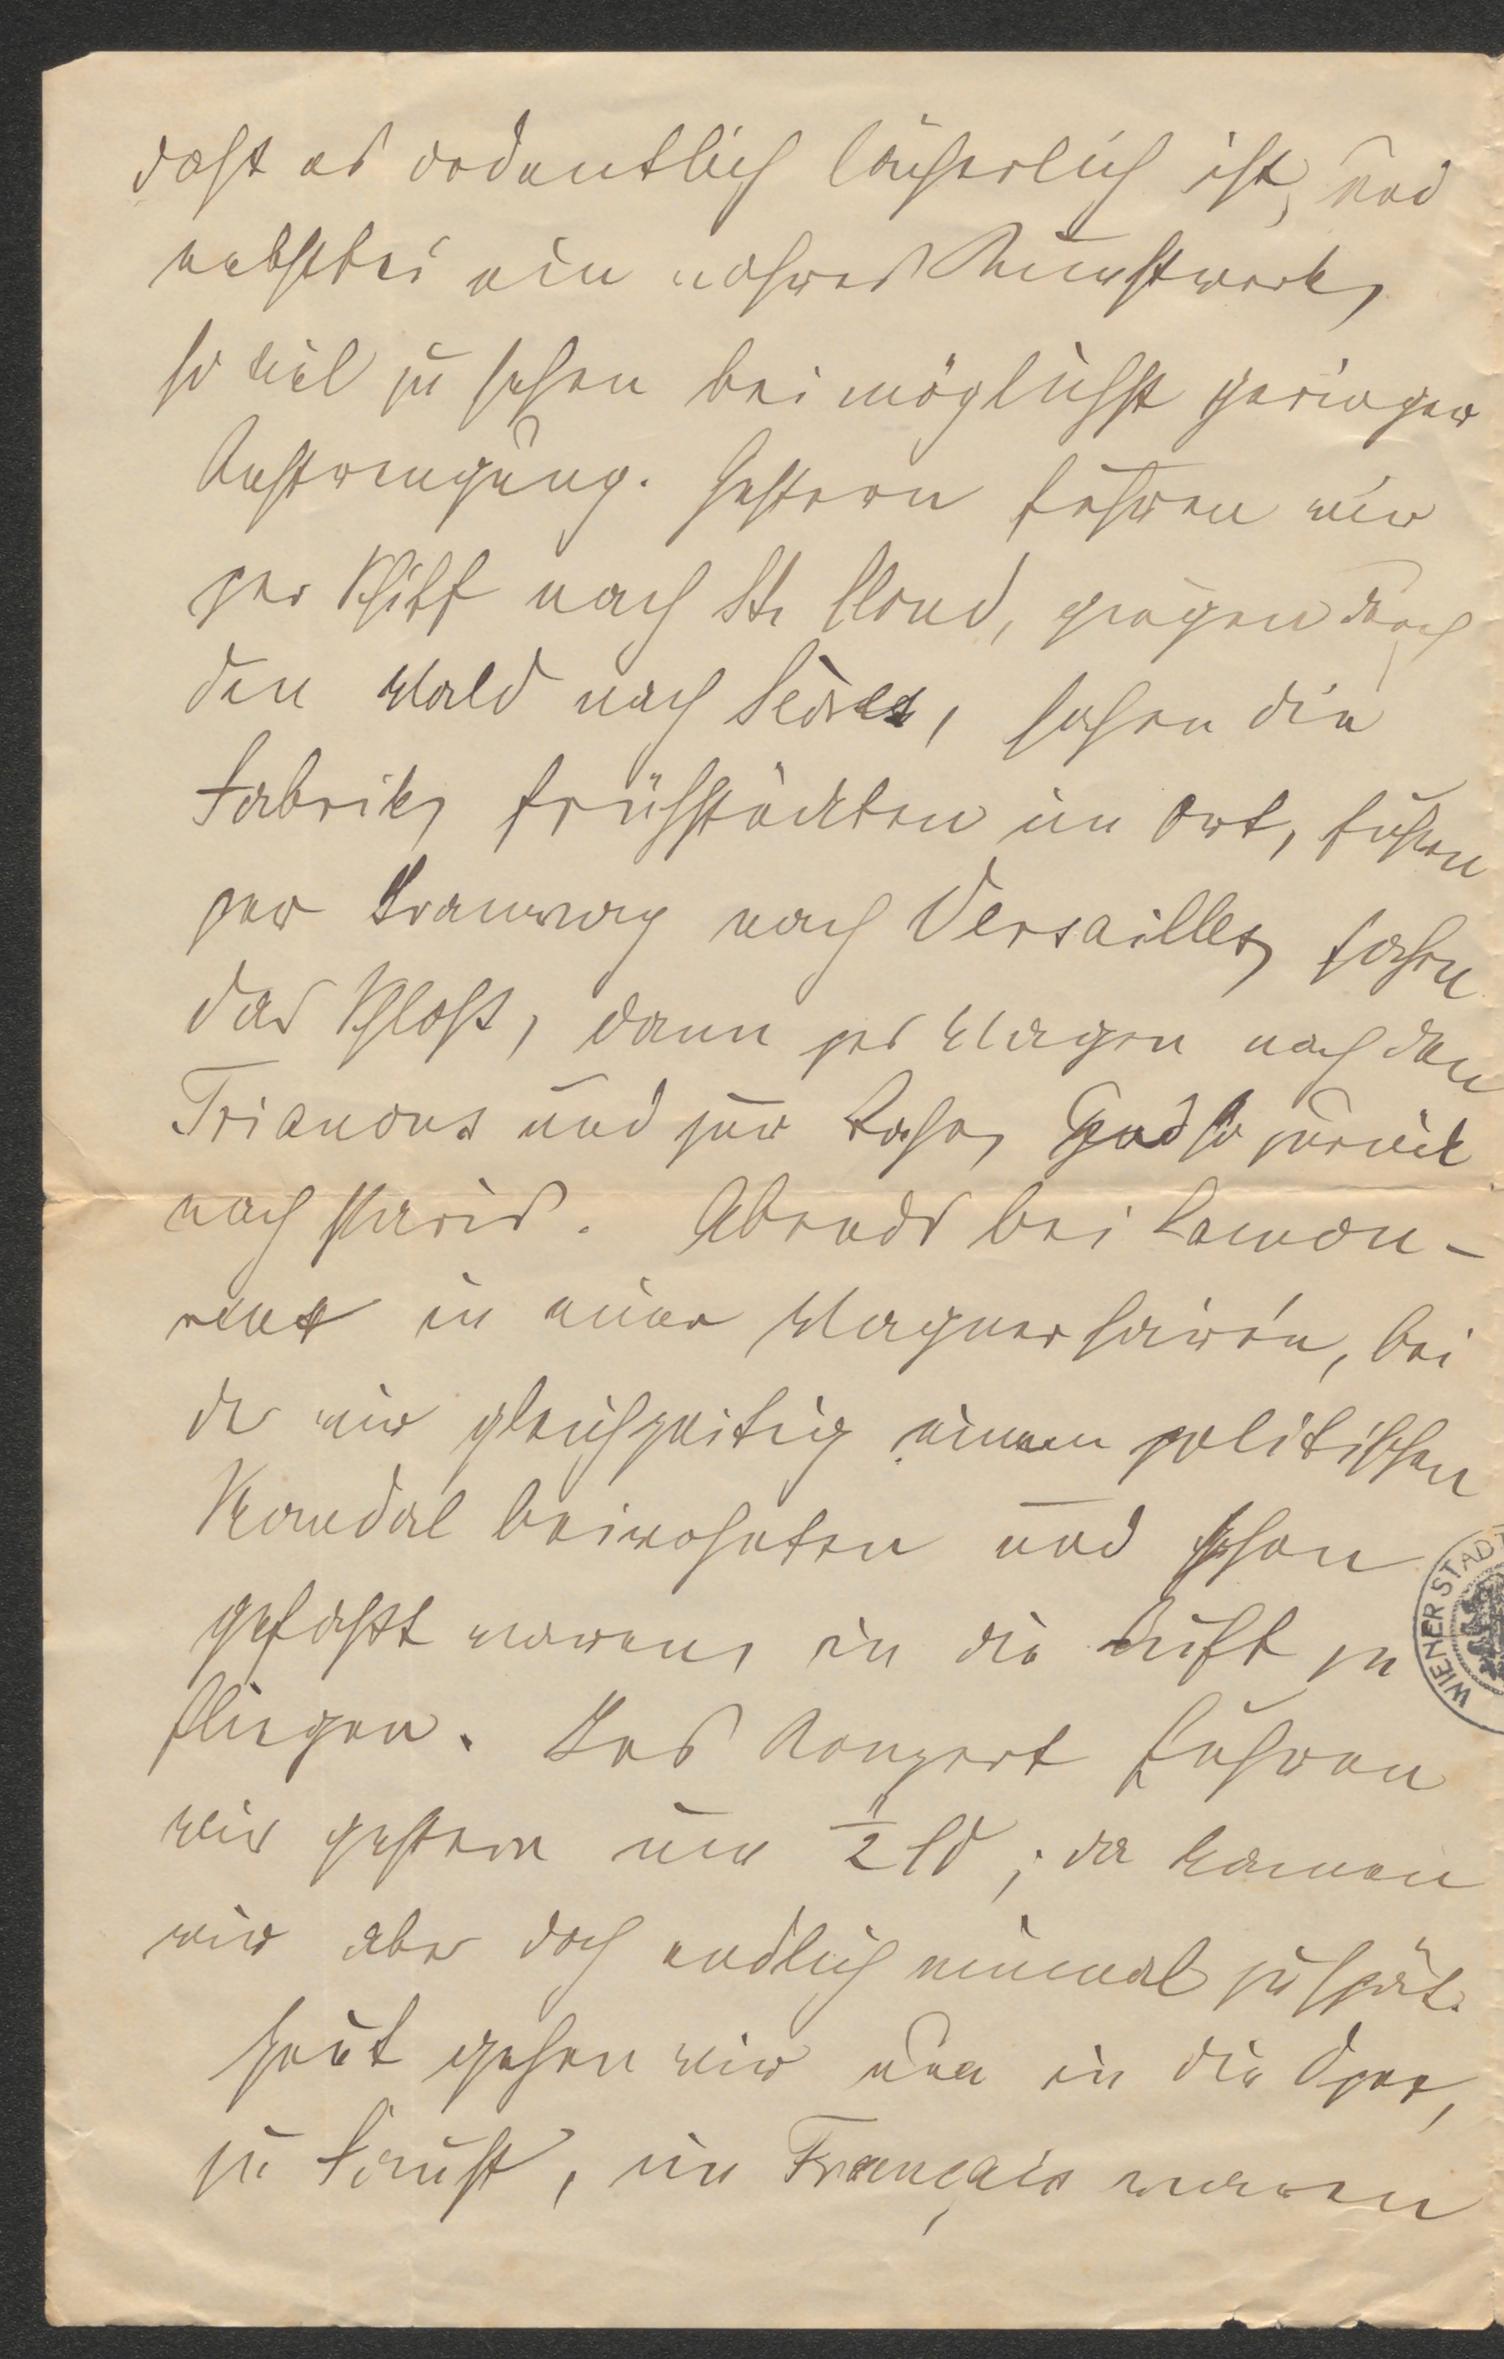 daß es ordentlich lächerlich ist, und
nebstbei ein wahres Kunstwerk,
so viel zu sehen bei möglichst geringer
Anstrengung. Gestern fuhren wir
per Schiff nach St. Cloud, giengen durch
den Wald nach Sèvres, sahen die
Fabrik, frühstückten im Ort, fuhren
per Tramway nach Versailles, sahen
das Schloß, dann per Wagen nach den
Trianons und zur Bahn, und so zurück
nach Paris. Abends bei Lamou-
reux in einer Wagnersoirée, bei
der wir gleichzeitig einem politischen
Skandal beiwohnten und schon
gefaßt waren, in die Luft zu
fliegen. Das Konzert
wir gestern um 1/2 ; da kamen
wir aber doch endlich einmal zu spät.
Heut gehen wir nun in die Oper,
zu Faust, im Français waren
WIENER STADT